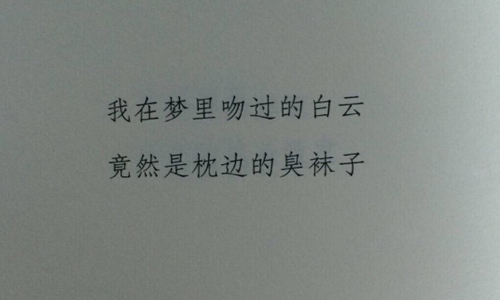 我在梦里吻过的白云
竟然是枕边的臭袜子